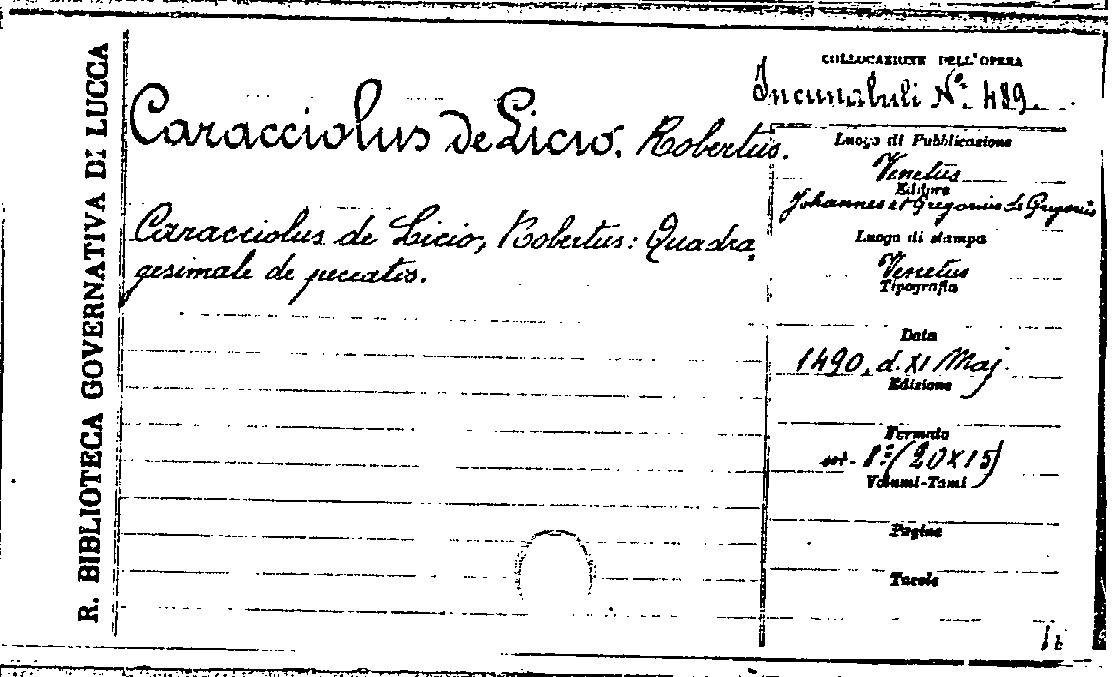 R. BIBLIOTECA GOVERNATIVA DI LUCCA
Caracciolus de Licio, Robertus.
Caracciolus de Licio, Robertus: Quadra
gesimale de peccatis.
COLLOCAZIONE DELL'OPERA
Incunabuli No. 489.
Luogo di Pubblicazione
Venetüs
Editore
Johannes et Gregorius de Gregoriis
Luogo di stampa
Venetüs
Tipografia
Data
1490, d. XI Maj.
Edizione
Formato
8° (20x15)
Volumi-Tomi
Pagine
Tavole